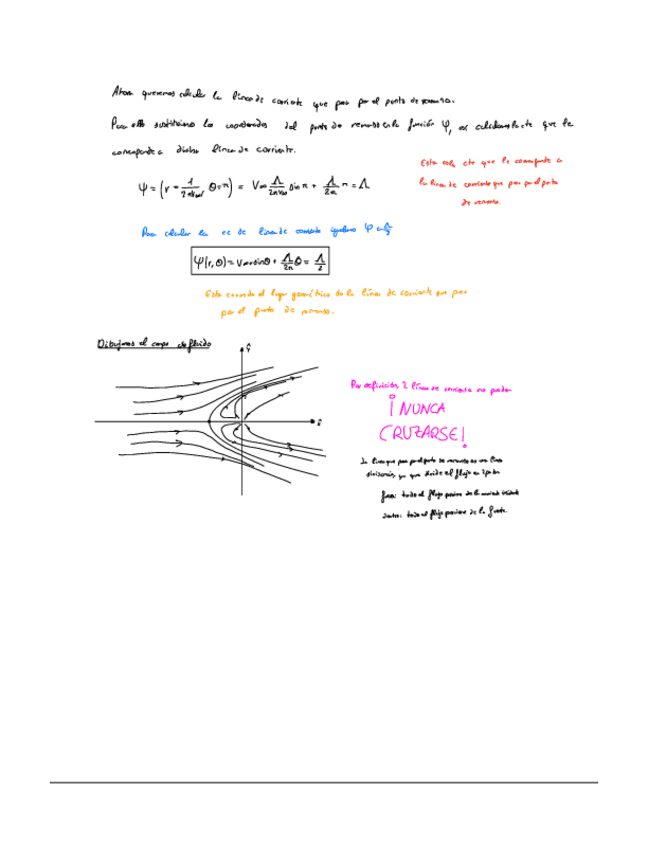 Ahora queremos calcular la línea de corriente que pasa por el punto de remanso.
Para ello sustituimos las coordenadas del punto de remanso en la función ψ, así calculamos la cte que le
corresponde a dicha línea de corriente.
Esta es la cte que le corresponde a
la línea de corriente que pasa por el punto
de remanso.
ψ = (r = Λ/2πV∞, θ=π) = V∞ Λ/2πV∞ sin π + Λ/2π π = Λ
Para calcular la ec de línea de corriente igualamos ψ a Λ/2
ψ(r, θ) = V∞ r sinθ + Λ/2π θ = Λ/2
Esta ecuación es el lugar geométrico de la línea de corriente que pasa
por el punto de remanso.
Dibujamos el campo de fluido
Por definición, 2 líneas de corriente no pueden
¡NUNCA
CRUZARSE!
La línea que pasa por el punto de remanso es una línea
divisoria, ya que divide el flujo en 2 partes
fuera: todo el flujo proviene de la corriente incidente
dentro: todo el flujo proviene de la fuente.